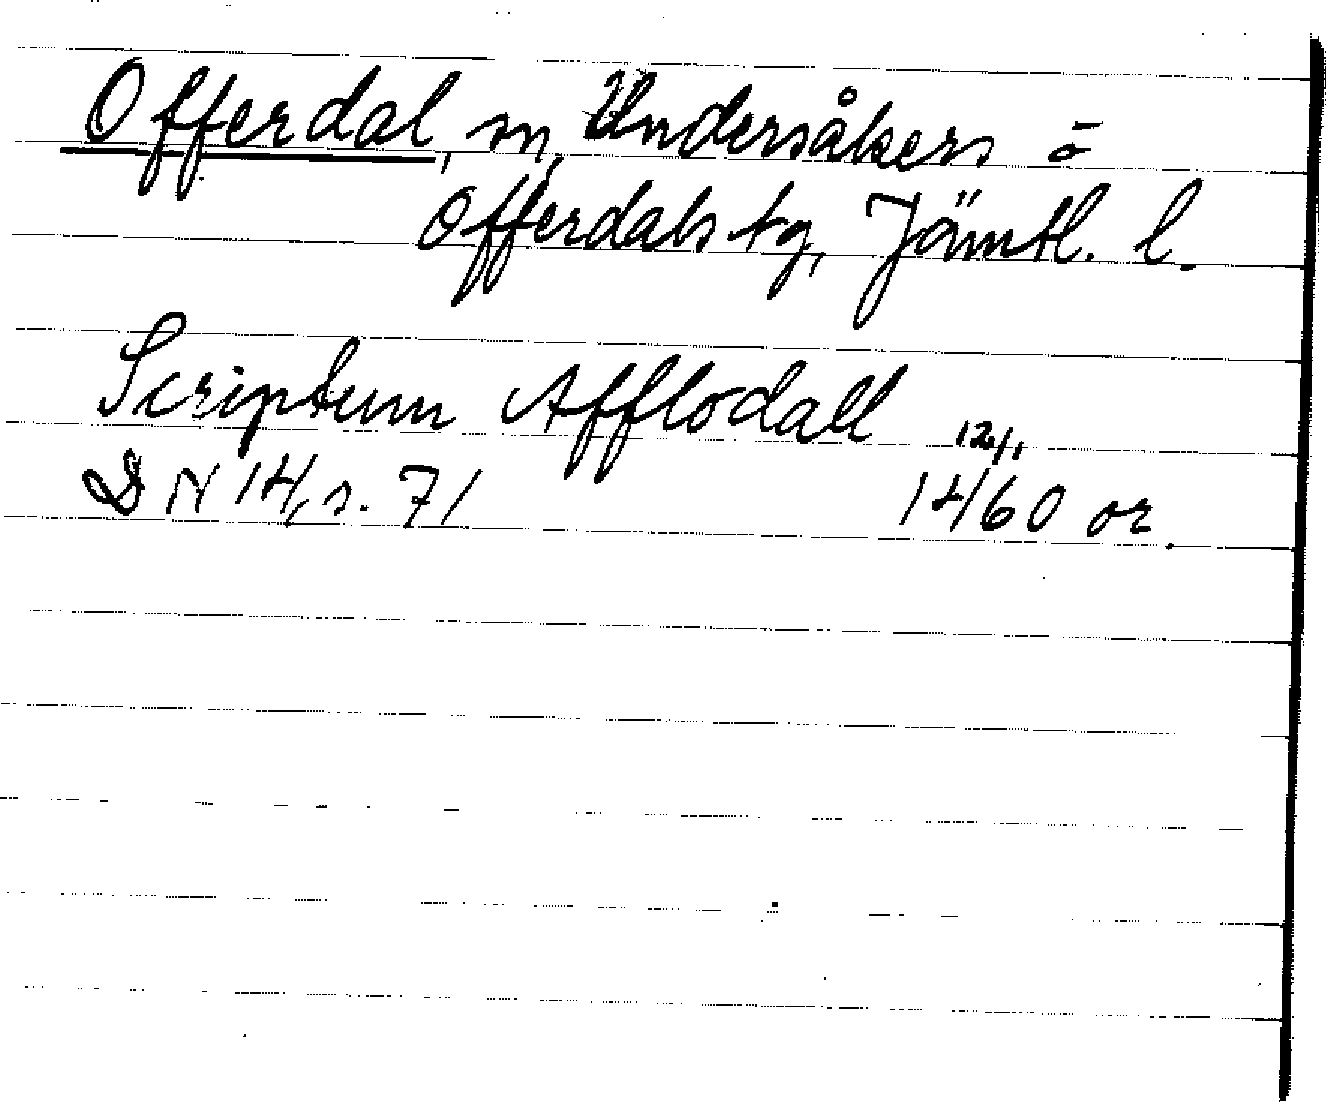 Offerdal, sn, Undersåkers o
Offerdals tg, Jämtl. l.
Scriptum Afflodall 12/1
DN 14, s. 71 1460 or.